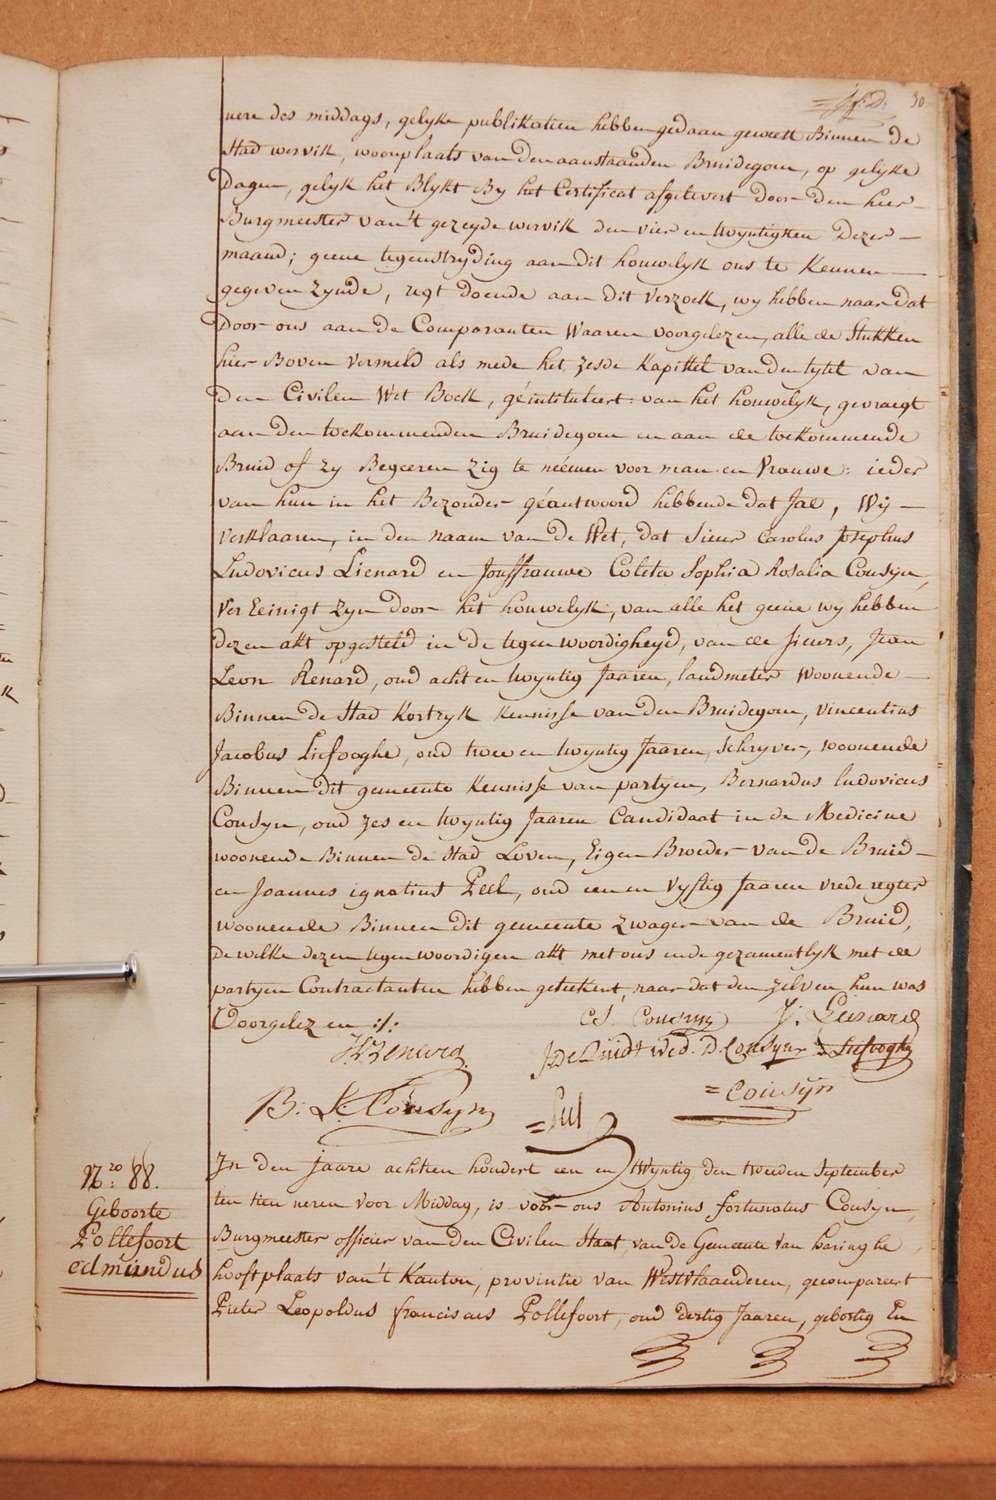 30
uere des middags, gelyke publikatien hebben gedaan geweest Binnen de
Stad wervik, woonplaats van den aanstaanden Bruidegom, op gelyke
Dagen, gelyk het Blykt By het Certificat afgelevert door den heer
Burgmeester van't gezeyde wervik den vier en twyntigsten Dezer
maand; geene tegenstryding aan dit houwelyk ons te kennen
gegeven zynde, regt doende aan dit verzoek, wy hebben naar dat
door ons aan de Comparanten Waaren voorgelezen, alle de Stukken
hier Boven vermeld als mede het zesde Kapittel van den tytel van
den Civilen Wet Boek, géintituleert van het houwelyk, gevraegt
aan den toekommenden Bruidegom en aan de toekommende
Bruid of zy Begeeren zig te néémen voor man en Vrauwe: ieder
van hun in het Bezonder géantwoord hebbende dat Jae, Wy
verklaaren, in den naam van de Wet, dat Sieur Carolus Josephus
Ludovicus Lienard en Jouffrauwe Coleta Sophia Rosalia Cousyn,
Vereeinigt zyn door het houwelyk, van alle het geene wy hebben
dezen akt opgesteld in de tegenwoordigheyd, van de Sieurs, Jean
Leon Renard, oud acht en twyntig Jaaren, landmeter woonende
Binnen de Stad Kortryk kennisse van den Bruidegom, vincentius
Jacobus Liefooghe, oud twee en twyntig Jaaren, schryver, woonende
Binnen dit gemeente kennisse van partyen, Bernardus ludovicus
Cousyn, oud zes en twyntig Jaaren Candidaat in de Medicine
woonende Binnen de Stad Loven, Eigen Broeder van de Bruid
en Joannes ignatius Peel, oud een en vyftig Jaaren vrede regter
woonende Binnen dit gemeente zwager van de Bruid,
de welke dezen tegenwoordigen akt met ons ende gezamentlyk met de
partyen Contractanten hebben geteekent, naar dat den zelven hun was
Voorgelezen :/:
CS. Cousyn
Wed. D. Cousyn
= Cousÿn
B: L: Coúsyn
N.ro 88.
Geboorte
Pollefoort
edmúndus
In den jaare achtien hondert een en twyntig den tweeden September
ten tien ueren voor Middag, is voor ons Antonius fortunatus Cousyn,
Burgmeester officier van den Civilen Staat van de Gemeente van haringhe
hooftplaats van't Kanton, provintie van Westvlaanderen, gecompareert
Pieter Leopoldus franciscus Pollefoort, oud dertig Jaaren, gebortig En